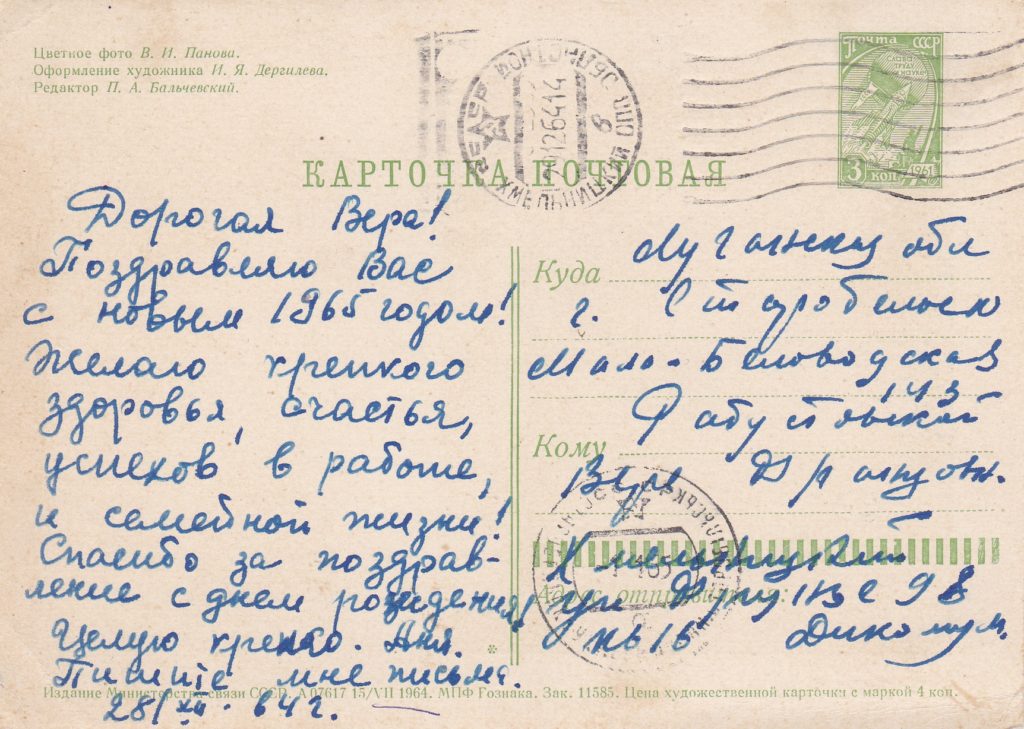 Цветное фото В. И. Панова.
Оформление художника И. Я. Дергилева.
Редактор П. А. Бальчевский.
Почта СССР
СЛАВА ТРУДУ И НАУКЕ
3 коп. 1961
ХМЕЛЬНИЦКИЙ
126414
КАРТОЧКА ПОЧТОВАЯ
Дорогая Вера!
Поздравляю Вас
с новым 1965 годом!
Желаю крепкого
здоровья, счастья,
успехов в работе,
и семейной жизни!
Спасибо за поздрав-
ление с днем рождения!
Целую крепко. Аня.
Пишите мне письма.
28/XII. 64 г.
Куда Луганская обл
г. Старобельск
Мало-Беловодская
143
Кому
Вере
Адрес отправителя:
Хмельницкий
ул
Издание Министерства связи СССР. А 07617 15/VII 1964. МПФ Гознака. Зак. 11585. Цена художественной карточки с маркой 4 коп.